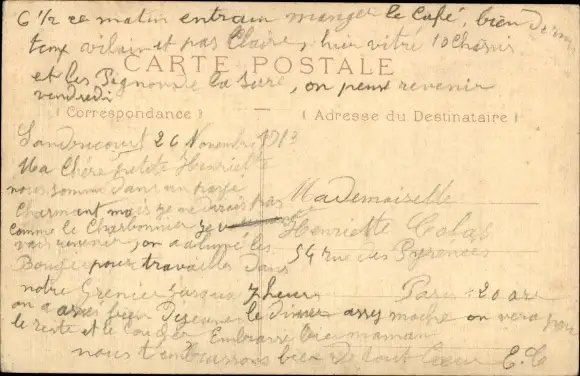 6 1/2 ce matin entrain manger le Café, bien
temps vilain et pas Claire, hier vitré 10 Chassis
CARTE POSTALE
et les Pignons de la Serre, on pense revenir
vendredi
(Correspondance) — (Adresse du Destinataire)
26 Novembre 1913
Ma Chère petite Henriette
nous somme dans un
Charmant mais je ne dirais pas
comme le Charbonnier je
vais revenir, on a allumé les
Bougie pour travailler dans
notre Grenier jusqua 7 heures
Mademoiselle
Henriette Colas
54 rue des Pyrénées
Paris - 20 are
on a assez bien Dejeuner le diner assez moche on vera pour
le reste et le Coucher Embrasse bien maman
nous t'embrassons bien de tout Coeur E. C